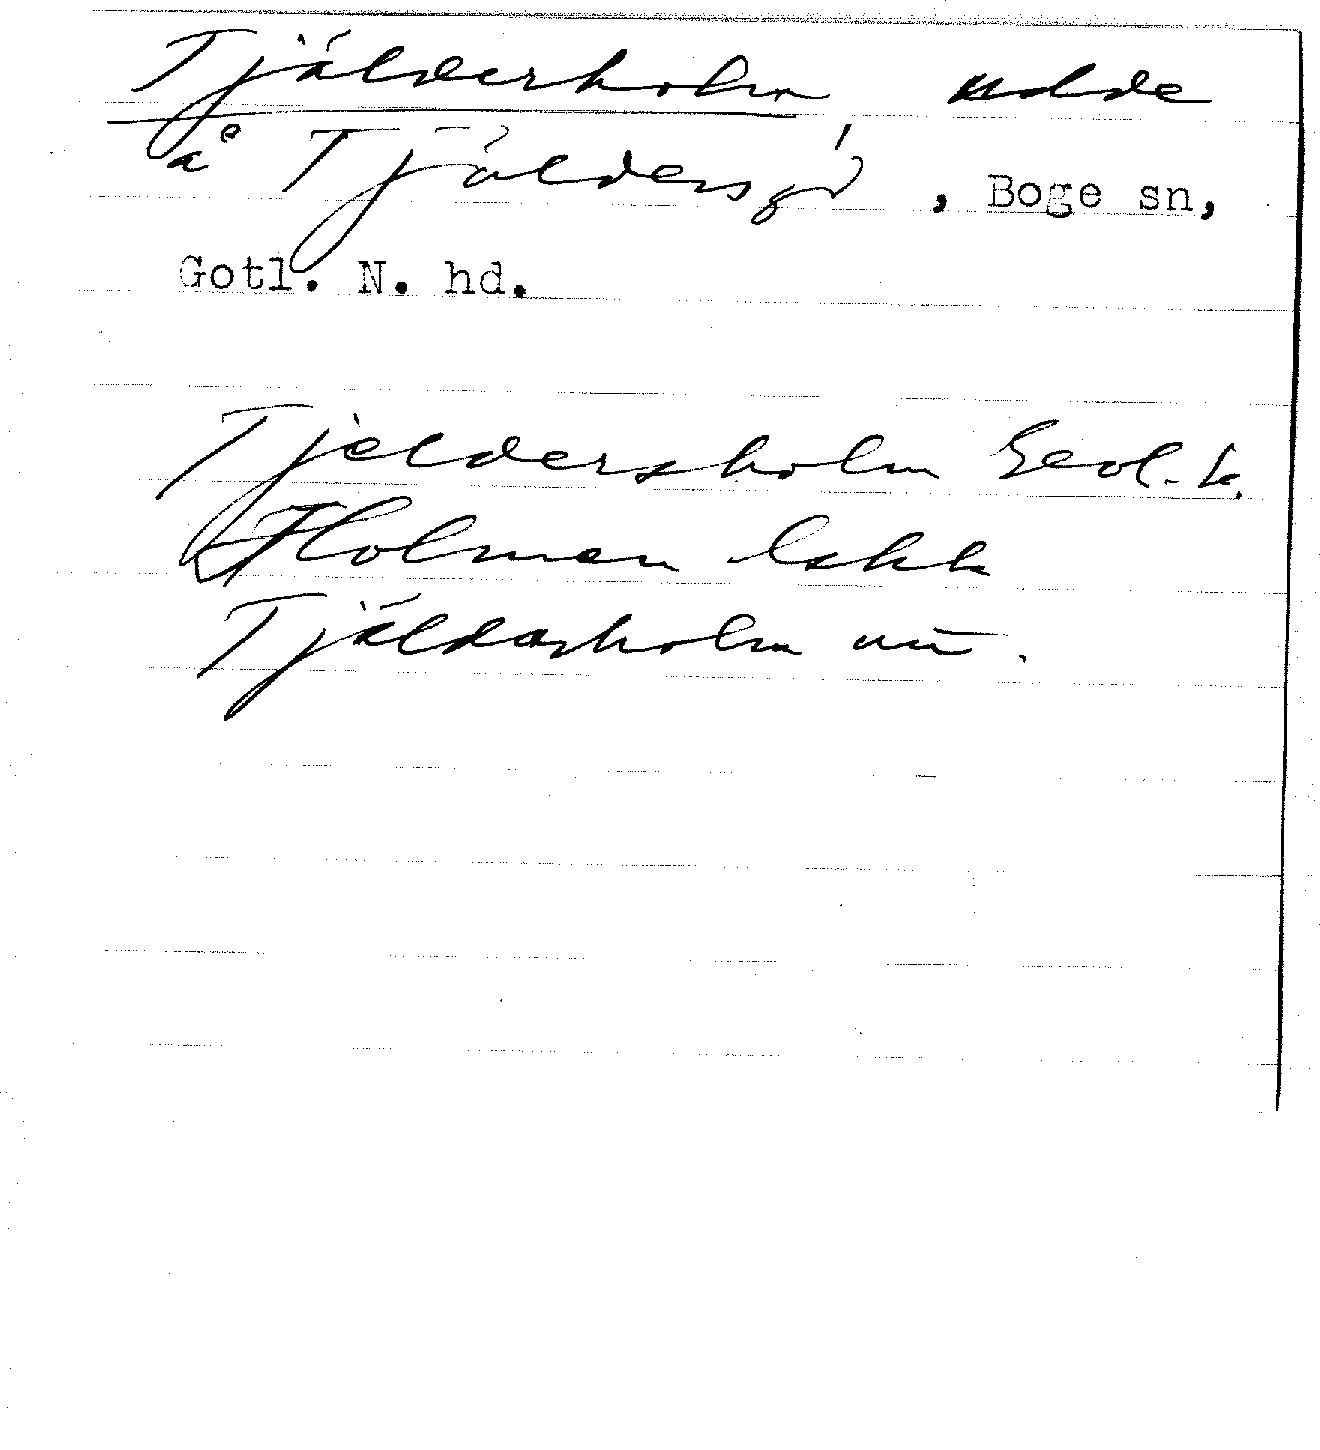 Tjälderholm, udde
å Tjäldersjö, Boge sn,
Gotl. N. hd.
Tjeldersholm Geol. k.
Holmen Eskk
Tjäldarholm uä.